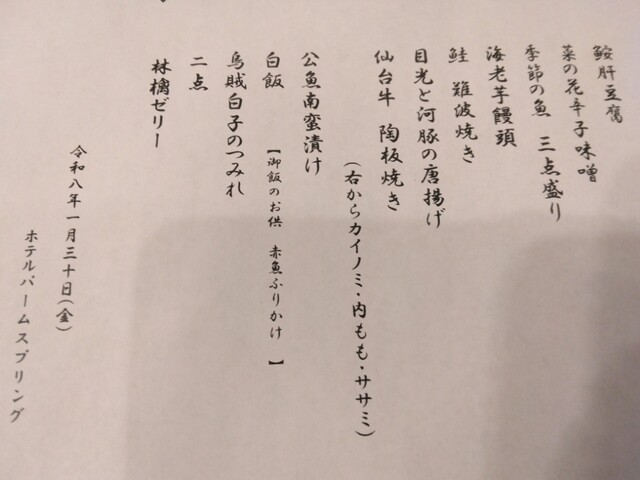 鮟肝豆腐
菜の花辛子味噌
季節の魚 三点盛り
海老芋饅頭
鮭 難波焼き
目光と河豚の唐揚げ
仙台牛 陶板焼き
(右からカイノミ・内もも・ササミ)
公魚南蛮漬け
白飯 【御飯のお供 赤魚ふりかけ 】
烏賊白子のつみれ
二点
林檎ゼリー
令和八年一月三十日(金)
ホテルパームスプリング